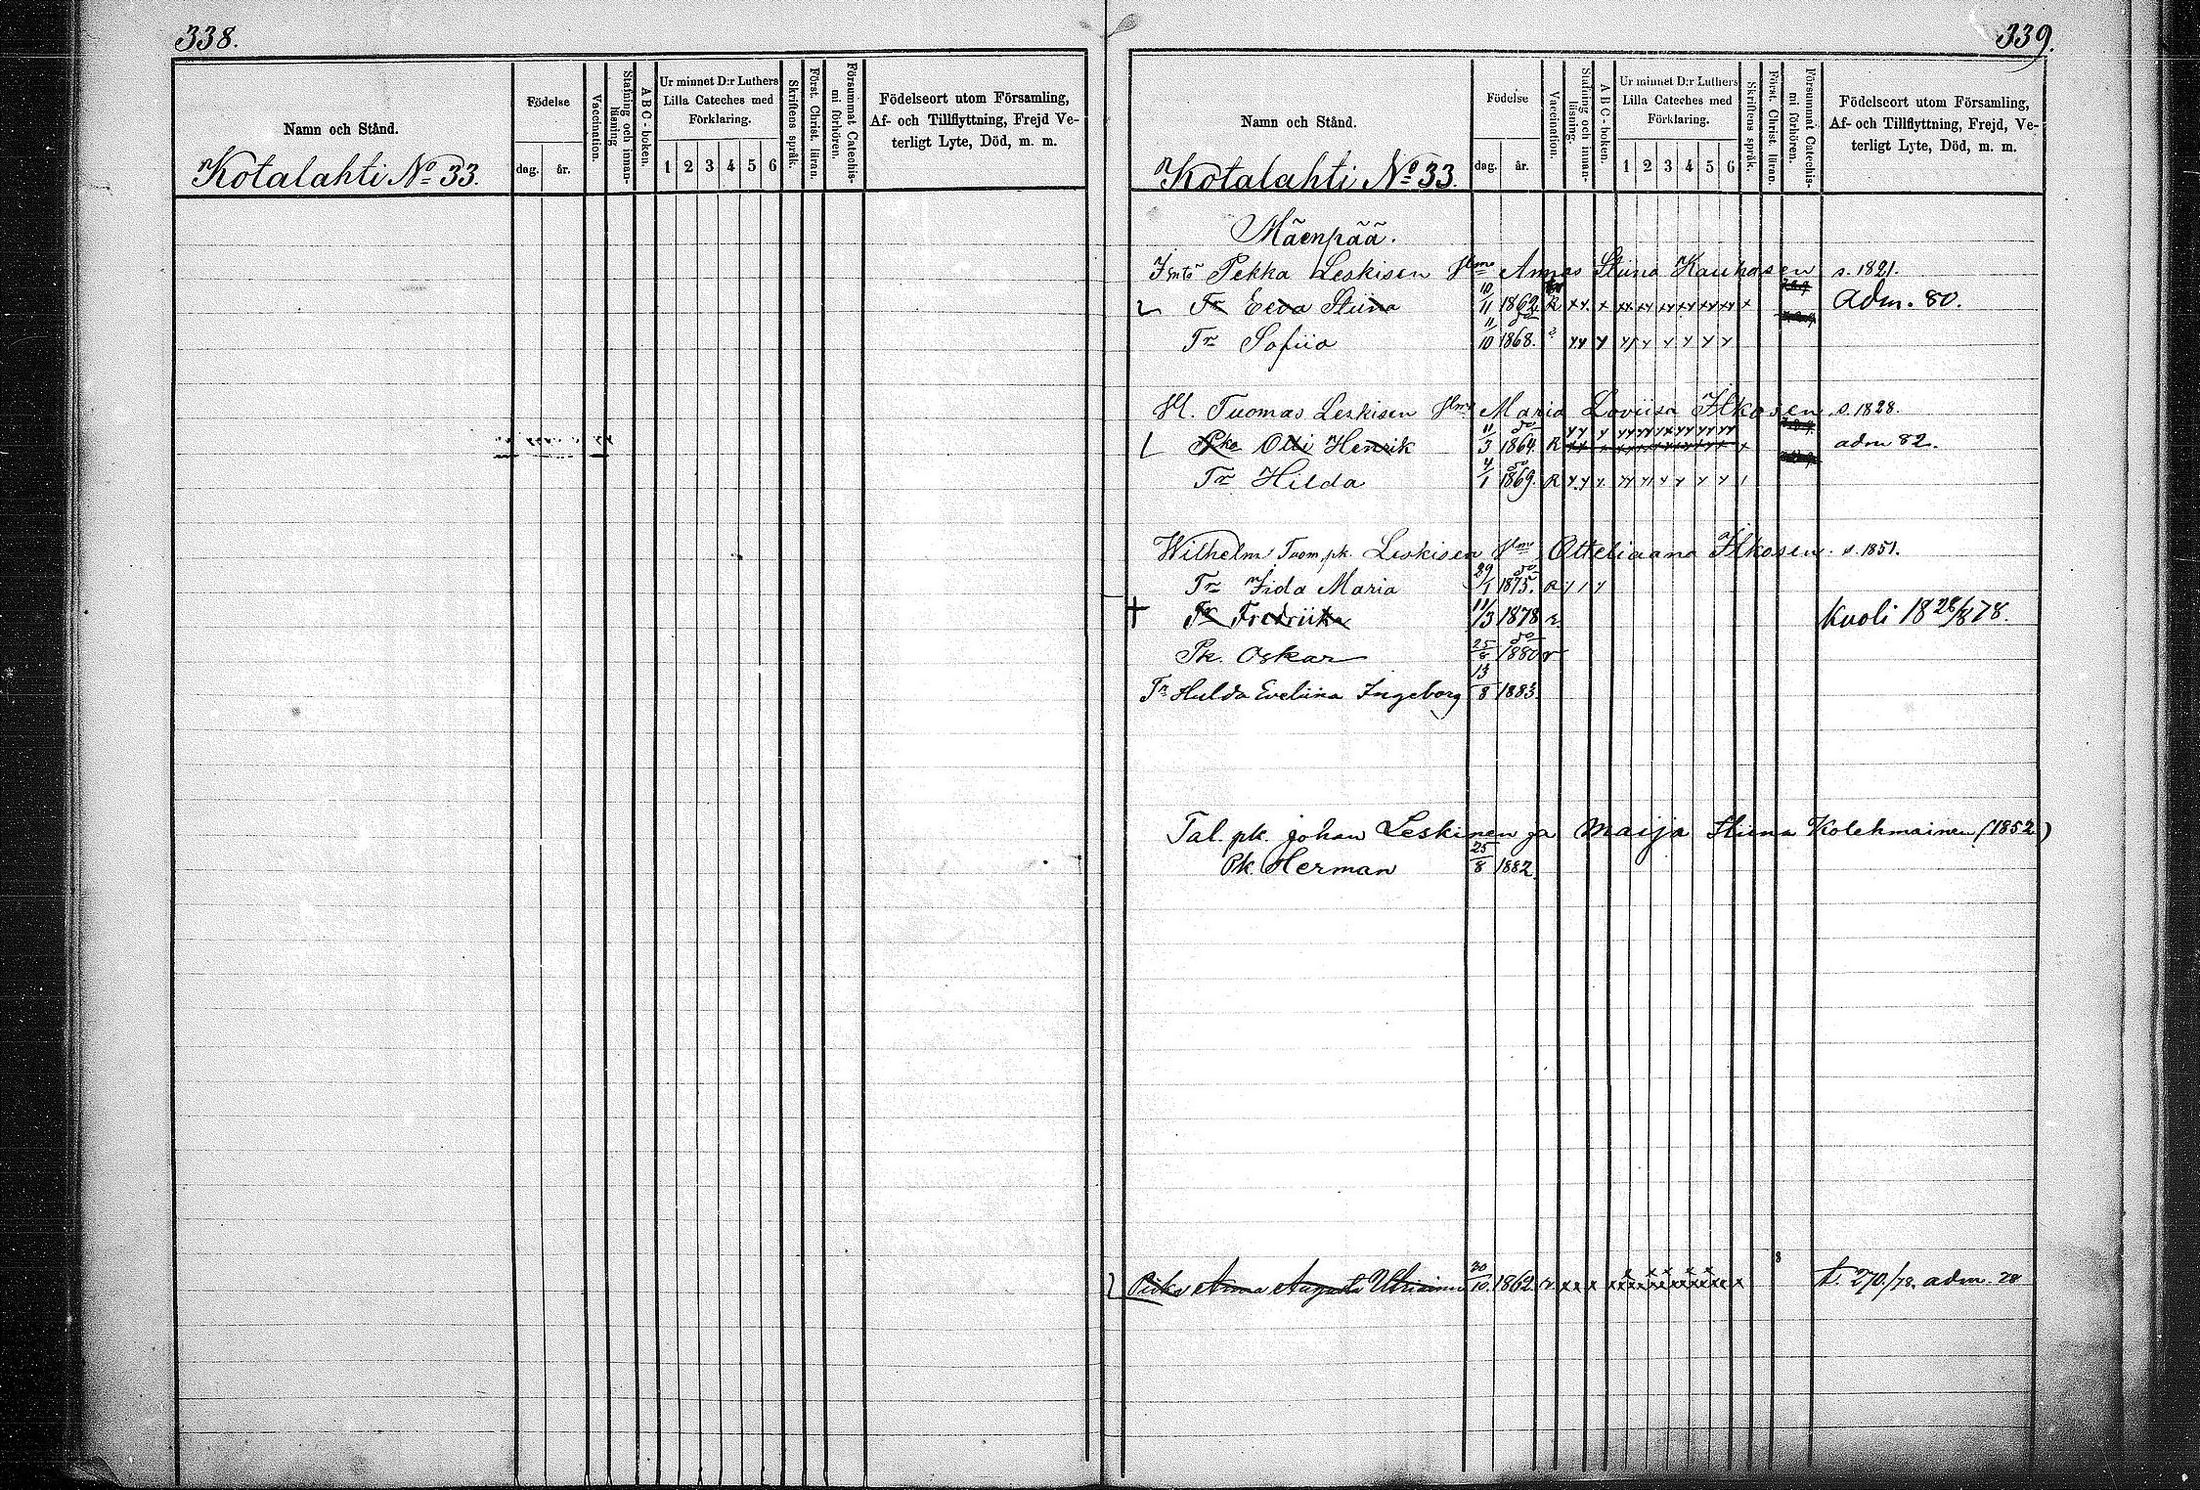 338.
Namn och Stånd.
Födelse
dag.
år.
Vaccination.
Stafning och innan-läsning
ABC-boken.
Ur minnet D:r Luthers
Lilla Cateches med
Förklaring.
1 2 3 4 5 6
Skriftens språk.
Först. Christ. läran.
Försummat Catechis-mi förhören.
Födelseort utom Församling,
Af- och Tillflyttning, Frejd Ve-
terligt Lyte, Död, m. m.
Kotalahti No 33.
339.
Namn och Stånd.
Födelse
dag.
år.
Vaccination.
Stafning och innan-läsning.
ABC-boken.
Ur minnet D:r Luthers
Lilla Cateches med
Förklaring.
1 2 3 4 5 6
Skriftens språk.
Först. Christ. läran.
Försummat Catechis-mi förhören.
Födelseort utom Församling,
Af- och Tillflyttning, Frejd, Ve-
terligt Lyte, Död, m. m.
Kotalahti No 33.
Mäenpää.
Pekka Leskisen Anna Stiina Kauhasen s. 1821.
Tr Eeva Stiina 10/11 1862. R Adm. 80.
Tr Sofiia 11/10 1868.
Tuomas Leskisen Maria Loviisa Ilkosen s. 1828.
Olli Henrik 11/3 1864. R adm 82.
Tr Hilda 4/1 1869. R
Wilhelm Tuom. pk. Leskisen Otteliaana Ilkosen s. 1851.
Tr Iida Maria 29/1 1875. R
Tr Fredriika 11/3 1878 r. kuoli 18 28/8 78.
Pk. Oskar 25/8 1880 r
Tr Hulda Eveliina Ingeborg 13/8 1883
Tal. pk. Johan Leskinen ja Maija Stiina Kolehmainen (1852)
Pk. Herman 25/8 1882.
Piika Anna Augusta 20/10. 1862. r. t. 270./78. adm. 78